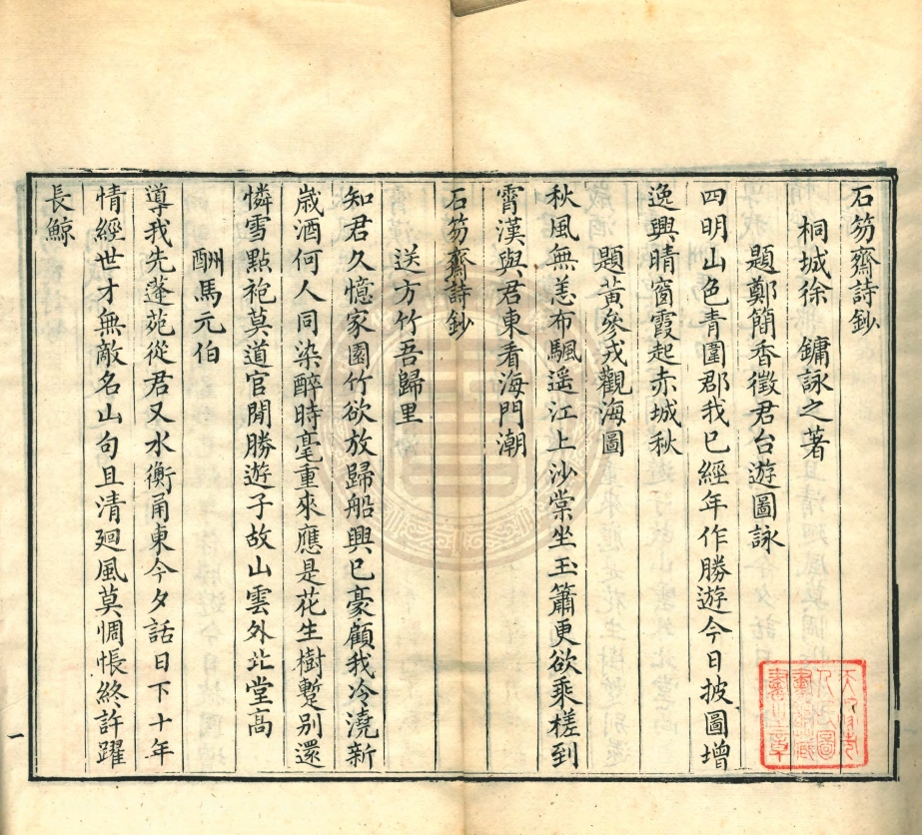 石笏齋詩鈔
桐城徐 鏞詠之著
題鄭簡香徵君台遊圖詠
四明山色青圍郡我已經年作勝遊今日披圖增
逸興晴窗霞起赤城秋
題黃參戎觀海圖
秋風無恙布颿遥江上沙棠坐玉簫更欲乘槎到
霄漢與君東看海門潮
石笏齋詩鈔
送方竹吾歸里
知君久憶家園竹欲放歸船興已豪顧我冷澆新
歲酒何人同染醉時毫重來應是花生樹蹔別還
憐雪點袍莫道官閒勝遊子故山雲外北堂高
酬馬元伯
導我先蓬苑從君又水衡甬東今夕話日下十年
情經世才無敵名山句且清廻風莫惆悵終許躍
長鯨
一